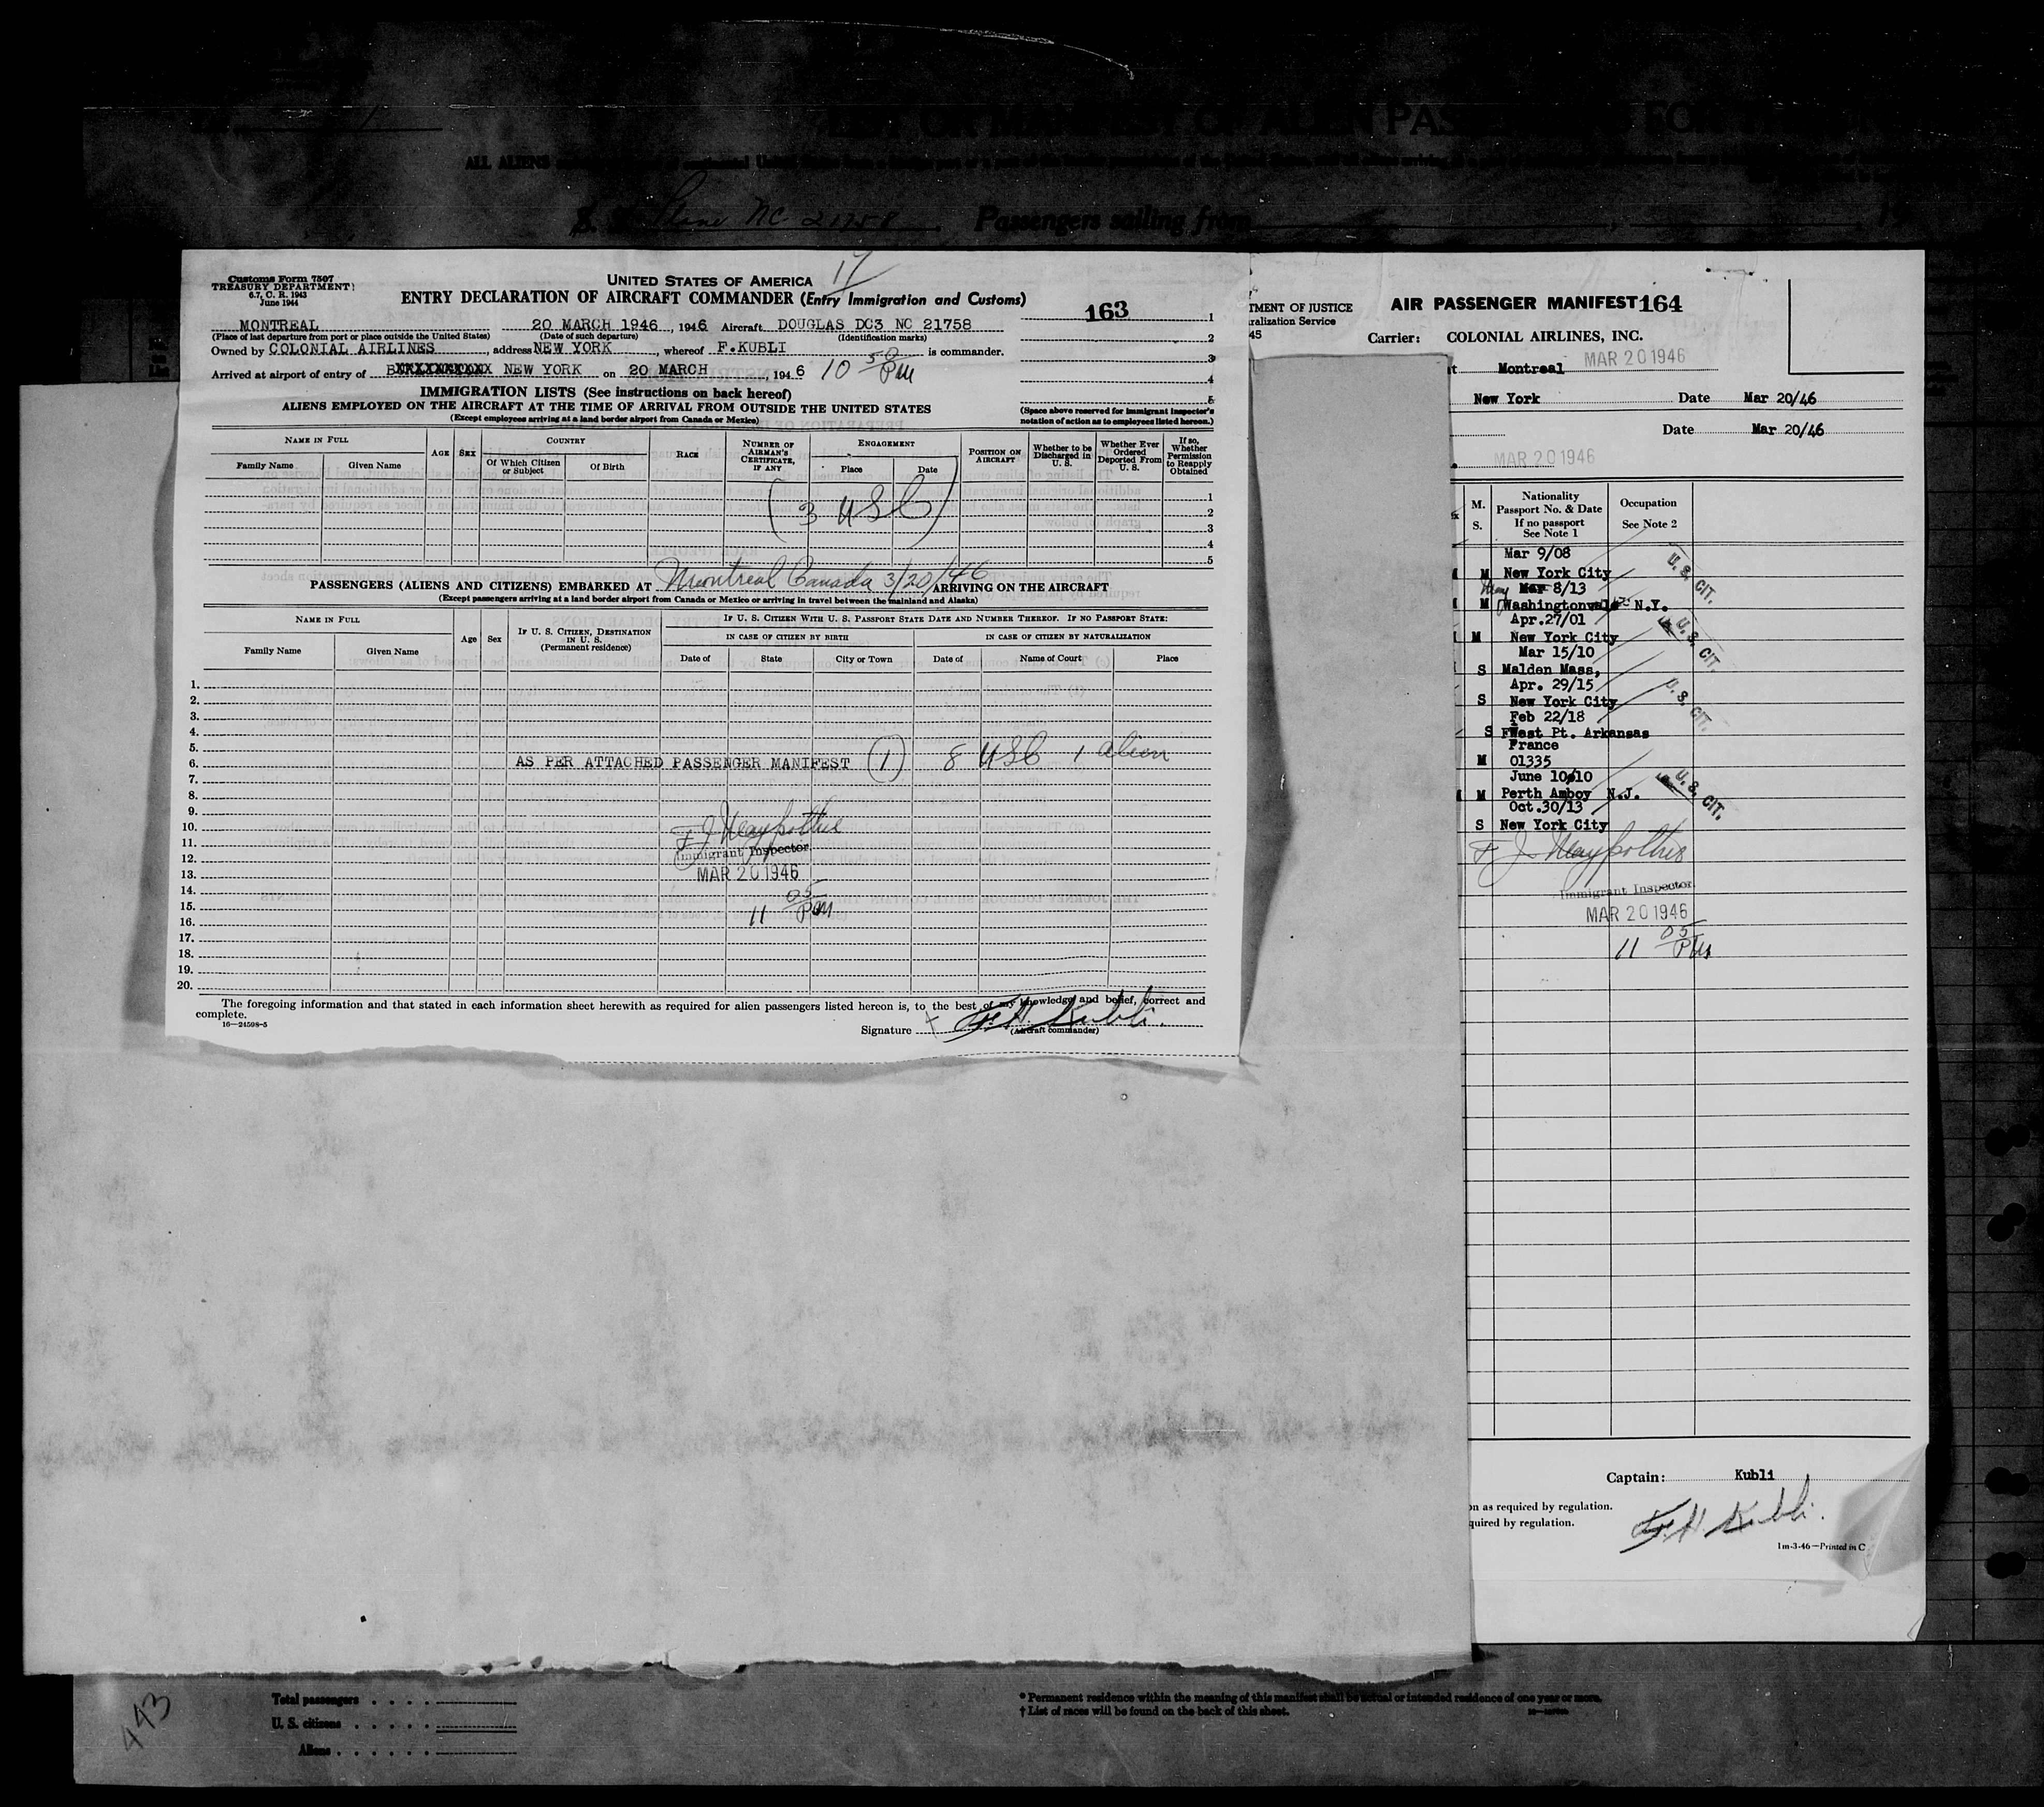 LIST OR MANIFEST OF ALIEN PASSENGERS FOR
ALL ALIENS
S. S. Plane NC 21758 Passengers sailing from , 19
Customs Form 7507
TREASURY DEPARTMENT
6.7, C. R. 1943
June 1944
UNITED STATES OF AMERICA 17
ENTRY DECLARATION OF AIRCRAFT COMMANDER (Entry Immigration and Customs)
163
MONTREAL 20 MARCH 1946 , 1946 Aircraft DOUGLAS DC3 NC 21758
(Place of last departure from port or place outside the United States) (Date of such departure) (Identification marks)
Owned by COLONIAL AIRLINES , address NEW YORK , whereof F.KUBLI is commander.
Arrived at airport of entry of NEW YORK on 20 MARCH , 1946 10 50 PM
1
2
3
4
5
IMMIGRATION LISTS (See instructions on back hereof)
ALIENS EMPLOYED ON THE AIRCRAFT AT THE TIME OF ARRIVAL FROM OUTSIDE THE UNITED STATES
(Except employees arriving at a land border airport from Canada or Mexico)
(Space above reserved for immigrant inspector's notation of action as to employees listed hereon.)
NAME IN FULL
Family Name Given Name
AGE SEX
COUNTRY
Of Which Citizen or Subject Of Birth
RACE
NUMBER OF AIRMAN'S CERTIFICATE, IF ANY
ENGAGEMENT
Place Date
POSITION ON AIRCRAFT
Whether to be Discharged in U. S.
Whether Ever Ordered Deported From U. S.
If so, Whether Permission to Reapply Obtained
(3 USC)
1
2
3
4
5
PASSENGERS (ALIENS AND CITIZENS) EMBARKED AT Montreal Canada 3/20/46 ARRIVING ON THE AIRCRAFT
(Except passengers arriving at a land border airport from Canada or Mexico or arriving in travel between the mainland and Alaska)
NAME IN FULL
Family Name Given Name
Age Sex
IF U. S. CITIZEN, DESTINATION IN U. S.
(Permanent residence)
IF U. S. CITIZEN WITH U. S. PASSPORT STATE DATE AND NUMBER THEREOF. IF NO PASSPORT STATE:
IN CASE OF CITIZEN BY BIRTH IN CASE OF CITIZEN BY NATURALIZATION
Date of State City or Town Date of Name of Court Place
1.
2.
3.
4.
5.
6. AS PER ATTACHED PASSENGER MANIFEST (1) 8 USC 1 alien
7.
8.
9.
10.
11. Immigrant Inspector
12.
13. MAR 20 1946
14.
15. 11 05 PM
16.
17.
18.
19.
20.
The foregoing information and that stated in each information sheet herewith as required for alien passengers listed hereon is, to the best of my knowledge and belief, correct and
complete.
16—24598-5
Signature F.H. Kubli.
(Aircraft commander)
TMENT OF JUSTICE
ralization Service
45
AIR PASSENGER MANIFEST 164
Carrier: COLONIAL AIRLINES, INC.
t Montreal MAR 20 1946
New York Date Mar 20/46
Date Mar 20/46
MAR 20 1946
M. S.
Nationality
Passport No. & Date
If no passport
See Note 1
Occupation
See Note 2
Mar 9/08
M New York City U. S. CIT.
May Mar 8/13
M Washingtonvale N.Y.
Apr.27/01
M New York City U. S. CIT.
Mar 15/10
S Malden Mass,
Apr. 29/15
S New York City U. S. CIT.
Feb 22/18
S West Pt. Arkansas
France
M 01335
June 10 10
M Perth Amboy N.J. U. S. CIT.
Oct.30/13
S New York City
Immigrant Inspector
MAR 20 1946
11 05 PM
Captain: Kubli
on as required by regulation.
quired by regulation.
F.H. Kubli.
1m-3-46—Printed in C
443
Total passengers
U. S. citizens
Aliens
* Permanent residence within the meaning of this manifest shall be actual or intended residence of one year or more.
† List of races will be found on the back of this sheet.